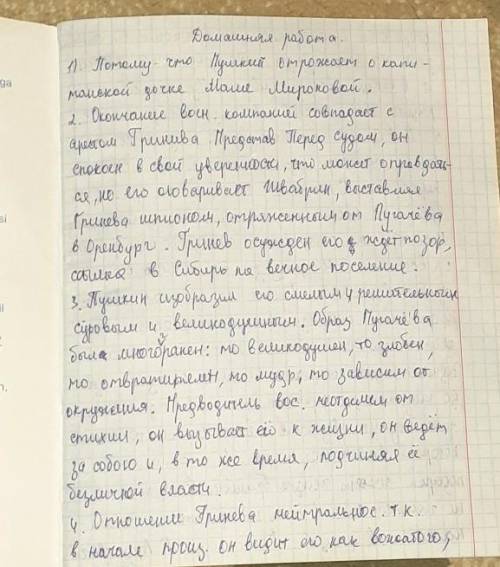 Домашняя работа.
1). Потому-что Пушкин отрожает о капи-
танской дочке Маше Мироновой.
2. Окончание воен. компаний совпадает с
арестом Гринива. Представ Перед судом, он
спокоен в свой уверенности, что может оправдать-
ся, но его оговаривает Швабрин, выставляя
Гринева шпионом, отряженным от Пугачёва
в Оренбург. Гринев осужден его ждёт позор,
ссылка в Сибирь на вечное поселение.
3. Пушкин изобразил его смелым и решительным
суровым и великодушным. Образ Пугачёва
был многогранен: то великодушен, то злобен,
то отвратителен, то мудр, то зависим от
окружения. Предводитель вос. неотделим от
стихии, он вызывает её к жизни, он ведёт
за собою и, в то же время, подчиняя её
безличной власти.
4. Отношение Гринева нейтральное. т.к.
в начале произ. он видит его как вожатого,